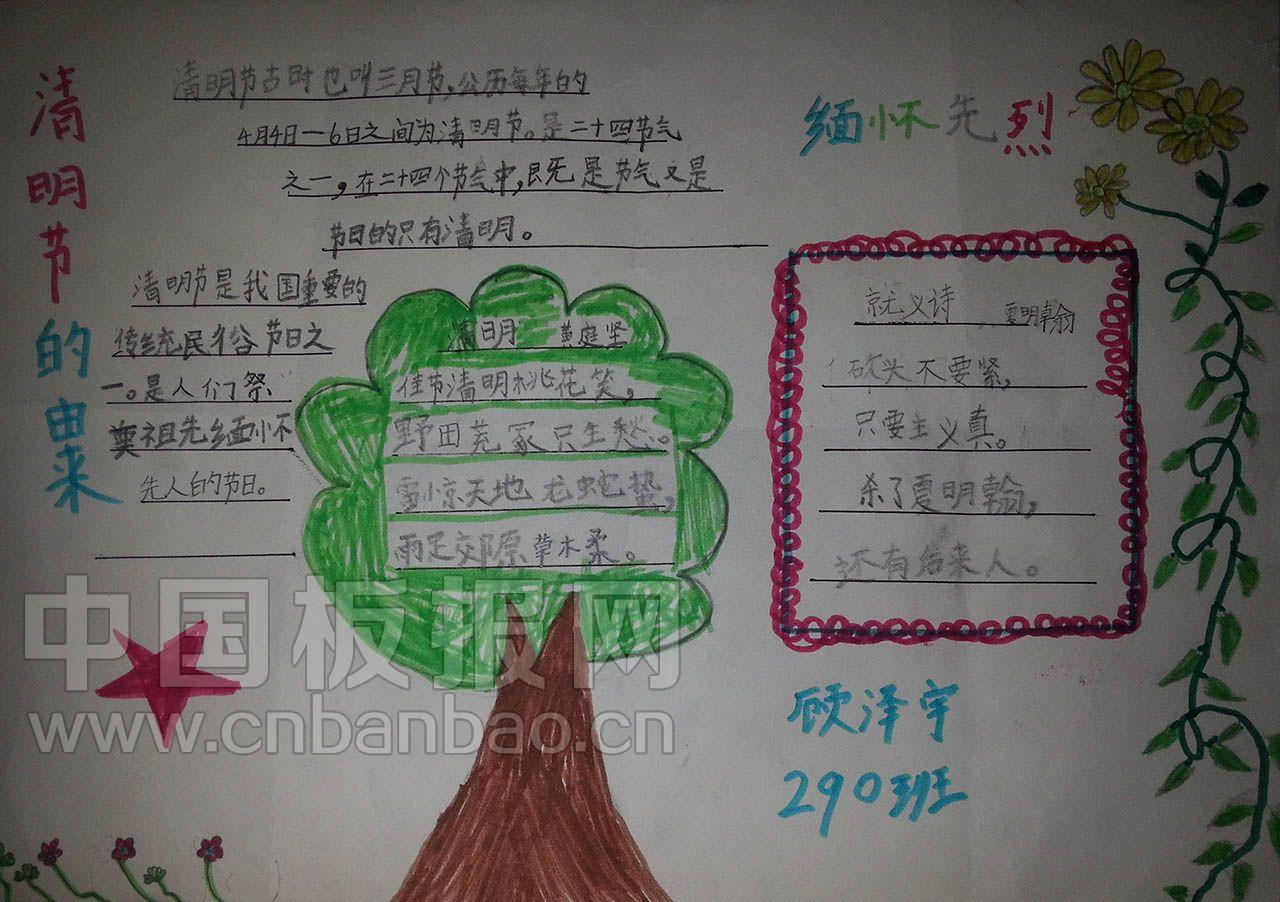 清明节的由来
清明节古时也叫三月节,公历每年的
4月4日—6日之间为清明节。是二十四节气
之一,在二十四个节气中,既是节气又是
节日的只有清明。
清明节是我国重要的
传统民俗节日之
一。是人们祭
奠祖先缅怀
先人的节日。
清明 黄庭坚
佳节清明桃花笑,
野田荒冢只生愁。
雪惊天地龙蛇蛰,
雨足郊原草木柔。
缅怀先烈
就义诗 夏明翰
砍头不要紧,
只要主义真。
杀了夏明翰,
还有后来人。
顾泽宇
290班
中国板报网
www.cnbanbao.cn